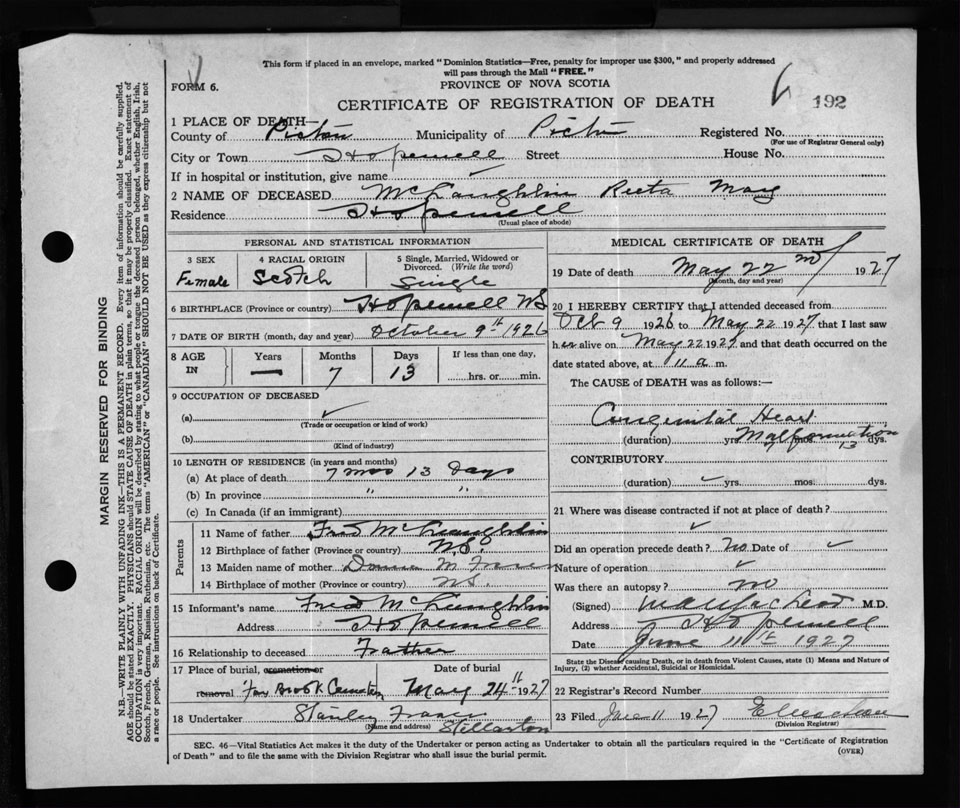 This form if placed in an envelope, marked "Dominion Statistics—Free, penalty for improper use $300," and properly addressed
will pass through the Mail "FREE."
FORM 6.
PROVINCE OF NOVA SCOTIA
CERTIFICATE OF REGISTRATION OF DEATH
192
1 PLACE OF DEATH—
County of Pictou Municipality of Pictou Registered No.
(For use of Registrar General only)
City or Town Hopewell Street House No.
If in hospital or institution, give name
2 NAME OF DECEASED McLaughlin Reeta May
Residence Hopewell
(Usual place of abode)
PERSONAL AND STATISTICAL INFORMATION
3 SEX 4 RACIAL ORIGIN 5 Single, Married, Widowed or
Divorced. (Write the word)
Female Scotch Single
6 BIRTHPLACE (Province or country) Hopewell NS
7 DATE OF BIRTH (month, day and year) October 9th 1926
8 AGE IN Years Months Days If less than one day,
— 7 13 hrs. or min.
9 OCCUPATION OF DECEASED
(a) ✓
(Trade or occupation or kind of work)
(b)
(Kind of industry)
10 LENGTH OF RESIDENCE (in years and months)
(a) At place of death 7 mos 13 Days
(b) In province " "
(c) In Canada (if an immigrant)
Parents
11 Name of father Fred McLaughlin
12 Birthplace of father (Province or country) N.S.
13 Maiden name of mother M Fraser
14 Birthplace of mother (Province or country) NS.
15 Informant's name Fred McLaughlin
Address Hopewell
16 Relationship to deceased Father
17 Place of burial, cremation or Date of burial
removal Brook Cemetery May 24th 1927
18 Undertaker Stanley Fraser
(Name and address) Stellarton
MEDICAL CERTIFICATE OF DEATH
19 Date of death May 22nd 1927
(Month, day and year)
20 I HEREBY CERTIFY that I attended deceased from
Oct 9 1926 to May 22 1927 that I last saw
her alive on May 22 1927 and that death occurred on the
date stated above, at 11 a m.
The CAUSE of DEATH was as follows:—
Congenital Heart
Malformation
(duration) yrs. 7 mos. 13 dys.
CONTRIBUTORY
(duration) ✓ yrs. mos. dys.
21 Where was disease contracted if not at place of death?
✓
Did an operation precede death? No Date of ✓
Nature of operation ✓
Was there an autopsy? no
(Signed) M.D.
Address Hopewell
Date June 11th 1927
State the Disease causing Death, or in death from Violent Causes, state (1) Means and Nature of
Injury, (2) whether Accidental, Suicidal or Homicidal.
22 Registrar's Record Number
23 Filed June 11 1927
(Division Registrar)
SEC. 46—Vital Statistics Act makes it the duty of the Undertaker or person acting as Undertaker to obtain all the particulars required in the "Certificate of Registration
of Death" and to file the same with the Division Registrar who shall issue the burial permit.
(OVER)
MARGIN RESERVED FOR BINDING
N.B.—WRITE PLAINLY WITH UNFADING INK—THIS IS A PERMANENT RECORD. Every item of information should be carefully supplied.
AGE should be stated EXACTLY. PHYSICIANS should STATE CAUSE OF DEATH in plain terms, so that it may be properly classified. Exact statement of
OCCUPATION is very important. RACIAL ORIGIN will be described by stating to what people or tongue the deceased person belonged, whether English, Irish,
Scotch, French, German, Russian, Ruthenian, etc. The terms "AMERICAN" or "CANADIAN" SHOULD NOT BE USED as they express citizenship but not
a race or people. See instructions on back of Certificate.